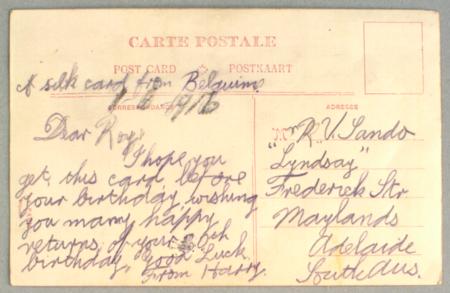 CARTE POSTALE
POST CARD POSTKAART
A silk card from Belguim
1916
CORRESPONDANCE
ADRESSE
Dear Roy
I hope you
get this card before
your birthday, wishing
you many happy
returns of your
birthday, Good Luck
From Harry.
Mr R. V. Sando
"Lyndsay"
Frederick Str
Maylands
Adelaide
South Aus.